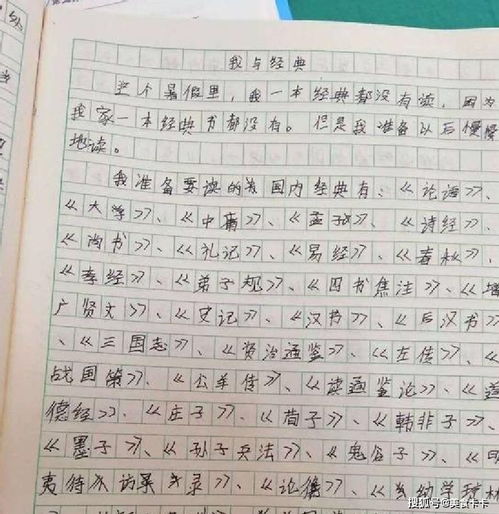 我与经典
这个暑假里,我一本经典都没有读,因为
我家一本经典书都没有。但是我准备以后慢慢
地读。
我准备要读的 国内经典有:《论语》、
《大学》、《中庸》、《孟子》、《诗经》、
《尚书》、《礼记》、《易经》、《春秋》、
《孝经》、《弟子规》、《四书集注》、《增
广贤文》、《史记》、《汉书》、《后汉书》
、《三国志》、《资治通鉴》、《左传》、《
战国策》、《公羊传》、《读通鉴论》、《道
德经》、《庄子》、《荀子》、《韩非子》、
《墨子》、《孙子兵法》、《鬼谷子》、《明
夷待 访录 》、《论衡》、《 幼学琼林
搜狐号@美食卡卡